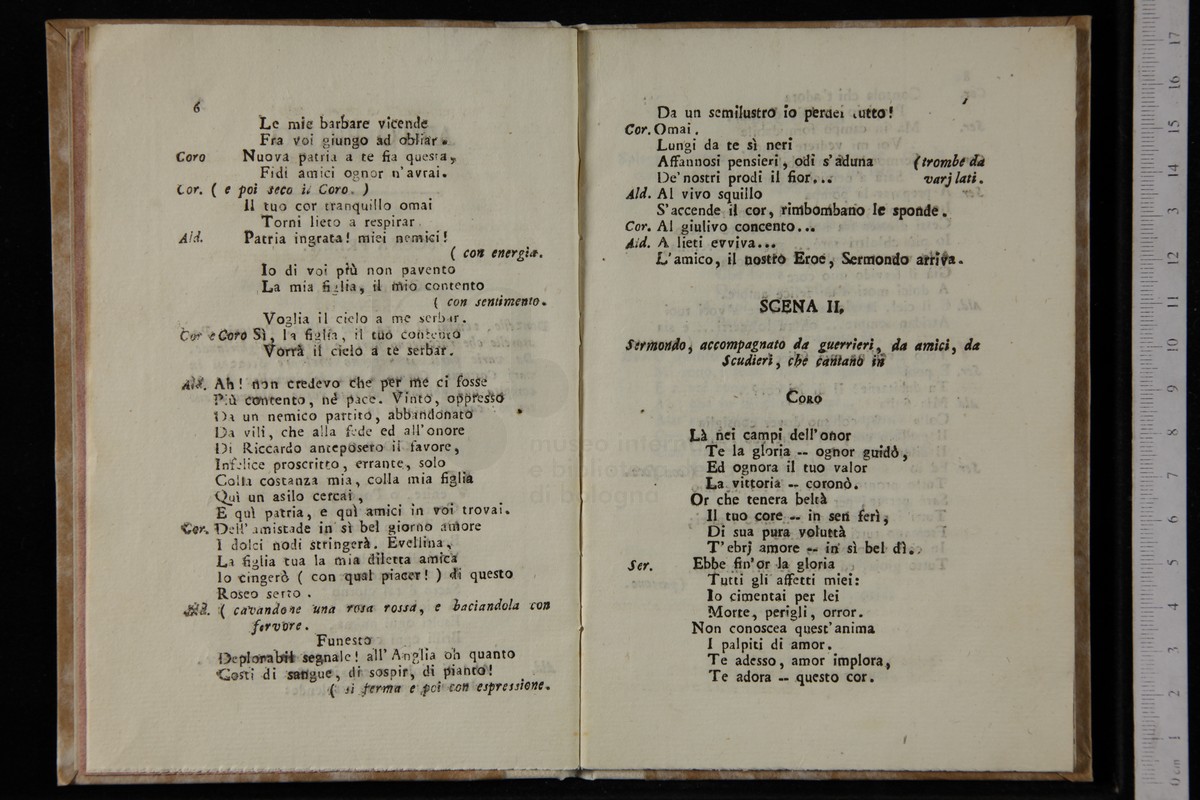 6
Le mie barbare vicende
Fra voi giungo ad obliar.
Coro Nuova patria a te fia questa,
Fidi amici ognor n'avrai.
Cor. ( e poi seco il Coro. )
Il tuo cor tranquillo omai
Torni lieto a respirar.
Ald. Patria ingrata! miei nemici!
( con energia.
Io di voi più non pavento
La mia figlia, il mio contento
( con sentimento.
Voglia il cielo a me serbar.
Cor e Coro Sì, la figlia, il tuo contento
Vorrà il cielo a te serbar.
Ald. Ah! non credevo che per me ci fosse
Più contento, nè pace. Vinto, oppresso
Da un nemico partito, abbandonato
Da vili, che alla fede ed all'onore
Di Riccardo anteposero il favore,
Infelice proscritto, errante, solo
Colla costanza mia, colla mia figlia
Quì un asilo cercai,
E quì patria, e quì amici in voi trovai.
Cor. Dell'amistade in sì bel giorno amore
I dolci nodi stringerà. Evellina,
La figlia tua la mia diletta amica
Io cingerò ( con qual piacer! ) di questo
Roseo serto.
Ald. ( cavandone una rosa rossa, e baciandola con
fervore.
Funesto
Deplorabil segnale! all'Anglia oh quanto
Costi di sangue, di sospir, di pianto!
( si ferma e poi con espressione.
Da un semilustro io perdei tutto!
Cor. Omai.
Lungi da te sì neri
Affannosi pensieri, odi s'aduna (trombe da
De'nostri prodi il fior... varj lati.
Ald. Al vivo squillo
S'accende il cor, rimbombano le sponde.
Cor. Al giulivo concento...
Ald. A lieti evviva...
L'amico, il nostro Eroe, Sermondo arriva.
SCENA II.
Sermondo, accompagnato da guerrieri, da amici, da
Scudieri, che cantano in
CORO
Là nei campi dell'onor
Te la gloria -- ognor guidò,
Ed ognora il tuo valor
La vittoria -- coronò.
Or che tenera beltà
Il tuo core -- in sen ferì,
Di sua pura voluttà
T'ebrj amore -- in sì bel dì.
Ser. Ebbe fin'or la gloria
Tutti gli affetti miei:
Io cimentai per lei
Morte, perigli, orror.
Non conoscea quest'anima
I palpiti di amor.
Te adesso, amor implora,
Te adora -- questo cor.
museo inter
e bibliote
di bologna
0 cm 1 2 3 4 5 6 7 8 9 10 11 12 13 14 15 16 17